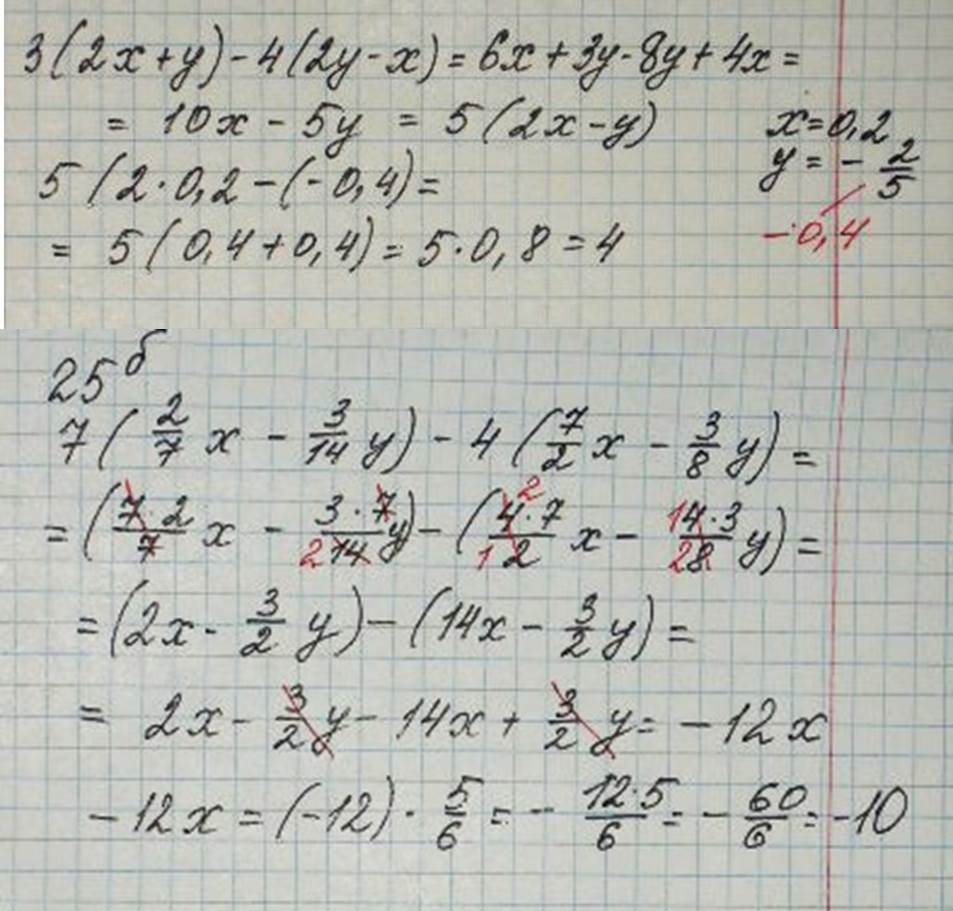 3(2x+y)-4(2y-x)=6x+3y-8y+4x=
= 10x - 5y = 5(2x-y)
x=0,2
y = - 2/5
5(2·0,2-(-0,4)=
-0,4
= 5(0,4+0,4)=5·0,8=4
25 б
7(2/7 x - 3/14 y) - 4(7/2 x - 3/8 y) =
=(7·2/7 x - 3·7/2 14 y) - (4 2·7/1 2 x - 1 4·3/2 8 y) =
=(2x - 3/2 y) - (14x - 3/2 y) =
= 2x - 3/2 y - 14x + 3/2 y = -12x
-12x = (-12) · 5/6 = - 12·5/6 = - 60/6 = -10